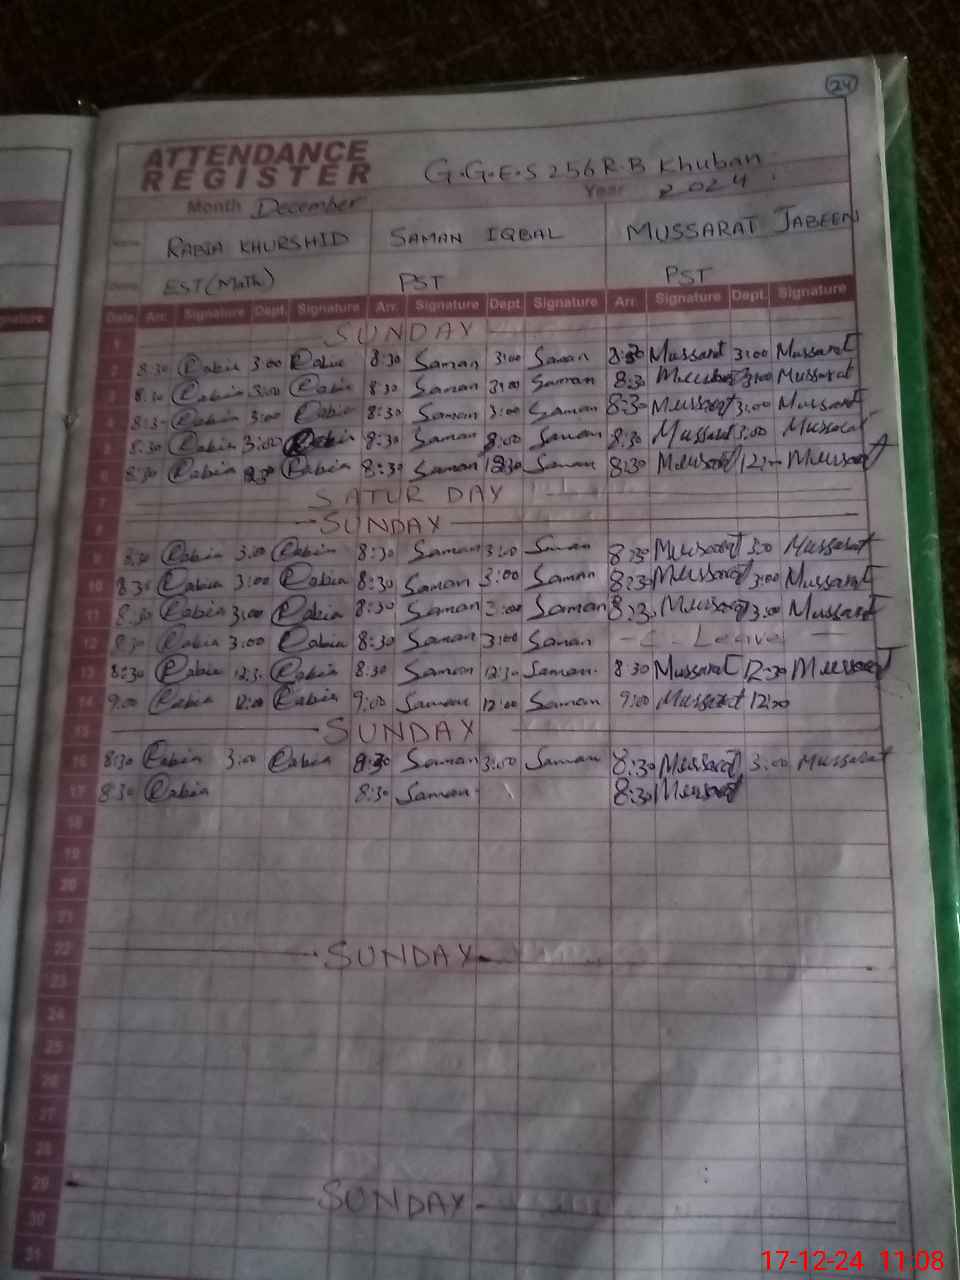 24
ATTENDANCE
REGISTER
G.G.E.S 256 R.B Khuban
Month December Year 2024
Name RABIA KHURSHID SAMAN IQBAL MUSSARAT JABEEN
EST (Math) PST PST
Date Arr. Signature Dept. Signature Arr. Signature Dept. Signature Arr. Signature Dept. Signature
1 SUNDAY
2 8:30 Rabia 3:00 Rabia 8:30 Saman 3:00 Saman 8:30 Mussarat 3:00 Mussarat
3 8:30 Rabia 3:00 Rabia 8:30 Saman 3:00 Saman 8:30 Mussarat 3:00 Mussarat
4 8:30 Rabia 3:00 Rabia 8:30 Saman 3:00 Saman 8:30 Mussarat 3:00 Mussarat
5 8:30 Rabia 3:00 Rabia 8:30 Saman 3:00 Saman 8:30 Mussarat 3:00 Mussarat
6 8:30 Rabia 12:30 Rabia 8:30 Saman 12:30 Saman 8:30 Mussarat Mussarat
7 SATURDAY
8 SUNDAY
9 8:30 Rabia 3:00 Rabia 8:30 Saman 3:00 Saman 8:30 Mussarat 3:00 Mussarat
10 8:30 Rabia 3:00 Rabia 8:30 Saman 3:00 Saman 8:30 Mussarat 3:00 Mussarat
11 8:30 Rabia 3:00 Rabia 8:30 Saman 3:00 Saman 8:30 Mussarat 3:00 Mussarat
12 8:30 Rabia 3:00 Rabia 8:30 Saman 3:00 Saman - C - Leave -
13 8:30 Rabia 12:30 Rabia 8:30 Saman 12:30 Saman 8:30 Mussarat 12:30 Mussarat
14 9:00 Rabia 12:00 Rabia 9:00 Saman 12:00 Saman 9:00 Mussarat 12:00
15 SUNDAY
16 8:30 Rabia 3:00 Rabia 8:30 Saman 3:00 Saman 8:30 Mussarat 3:00 Mussarat
17 8:30 Rabia 8:30 Saman 8:30 Mussarat
18
19
20
21
22 SUNDAY
23
24
25
26
27
28
29 SUNDAY
30
31
17-12-24 11:08